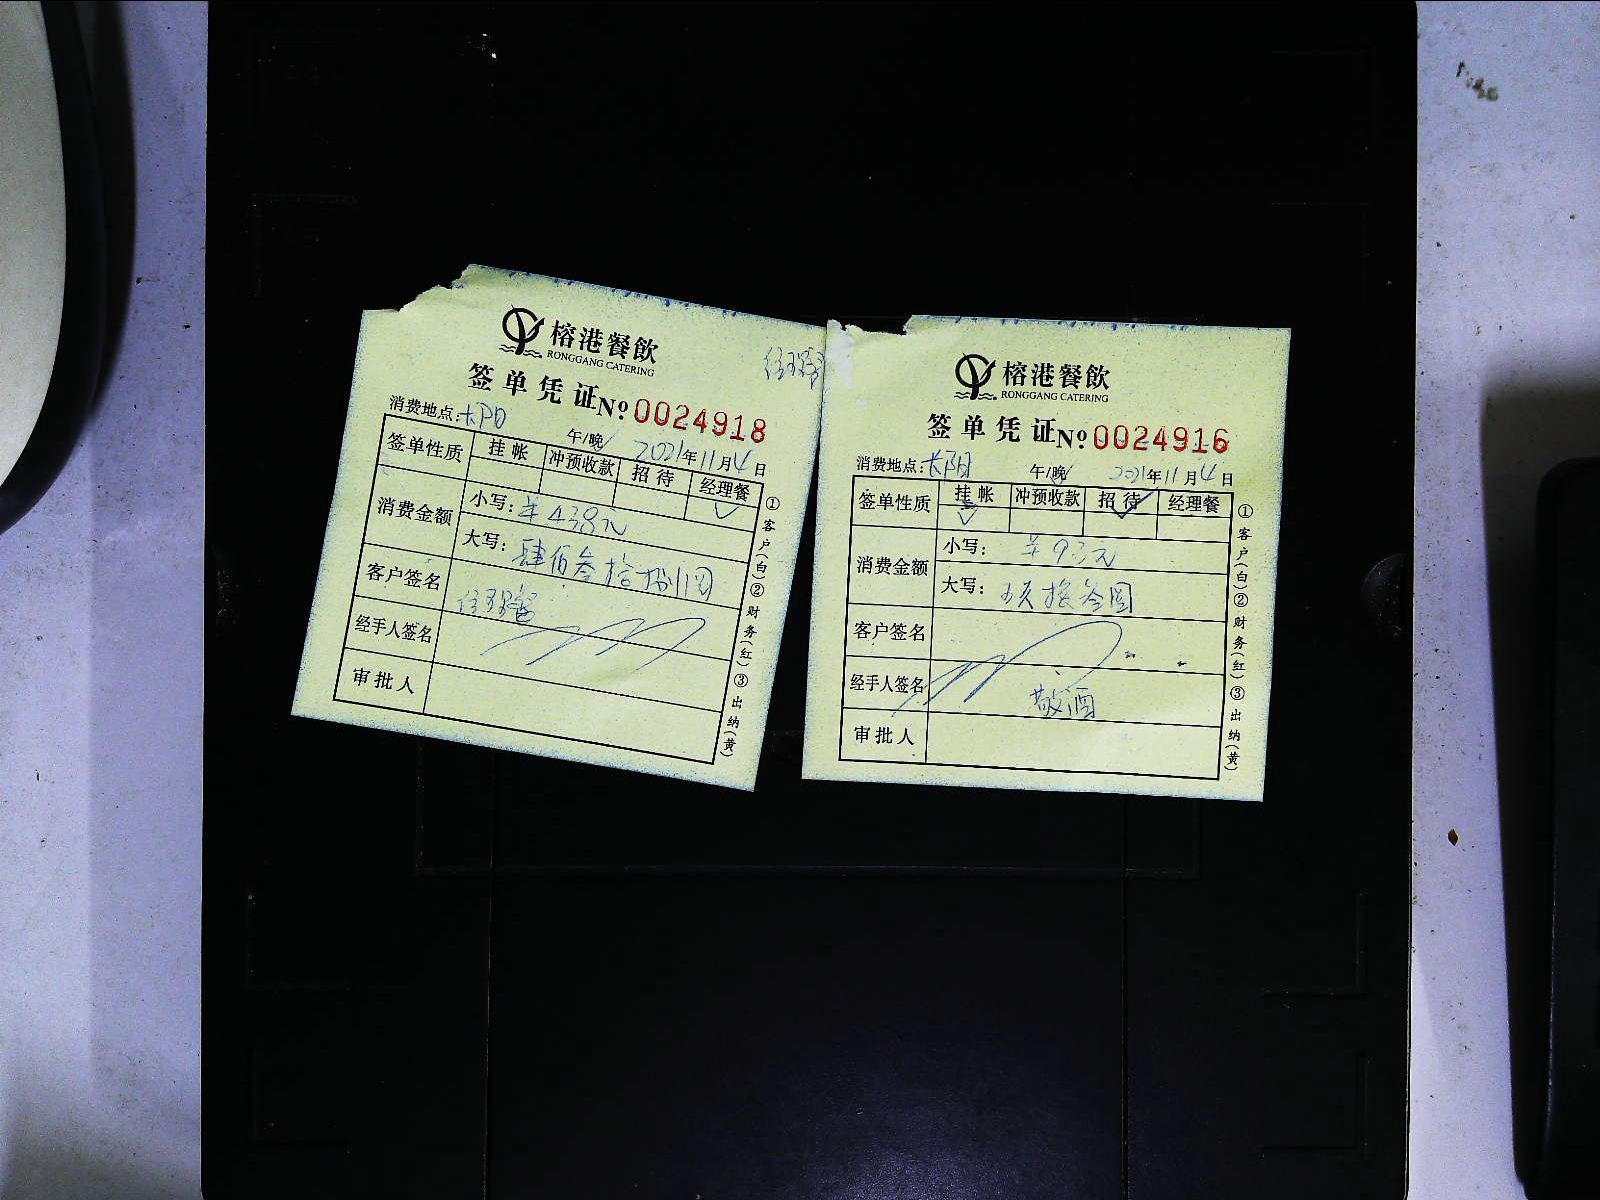 榕港餐飲
RONGGANG CATERING
签单凭证 №0024918
消费地点:长阳 午/晚 2021年11月4日
签单性质 挂帐 冲预收款 招待 经理餐
消费金额 小写:¥438元
大写:肆佰叁拾捌圆
客户签名
经手人签名
审批人
①客户(白)②财务(红)③出纳(黄)
榕港餐飲
RONGGANG CATERING
签单凭证 №0024916
消费地点:长阳 午/晚 2021年11月4日
签单性质 挂帐 冲预收款 招待 经理餐
消费金额 小写:¥93元
大写:玖拾叁圆
客户签名
经手人签名 敬酒
审批人
①客户(白)②财务(红)③出纳(黄)